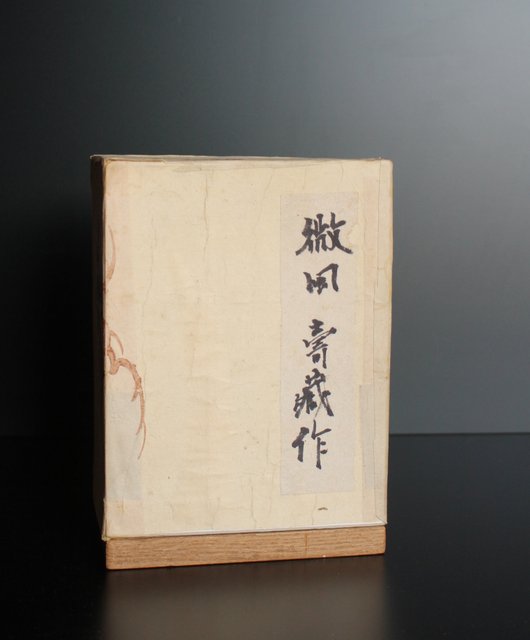 微風 壽蔵作